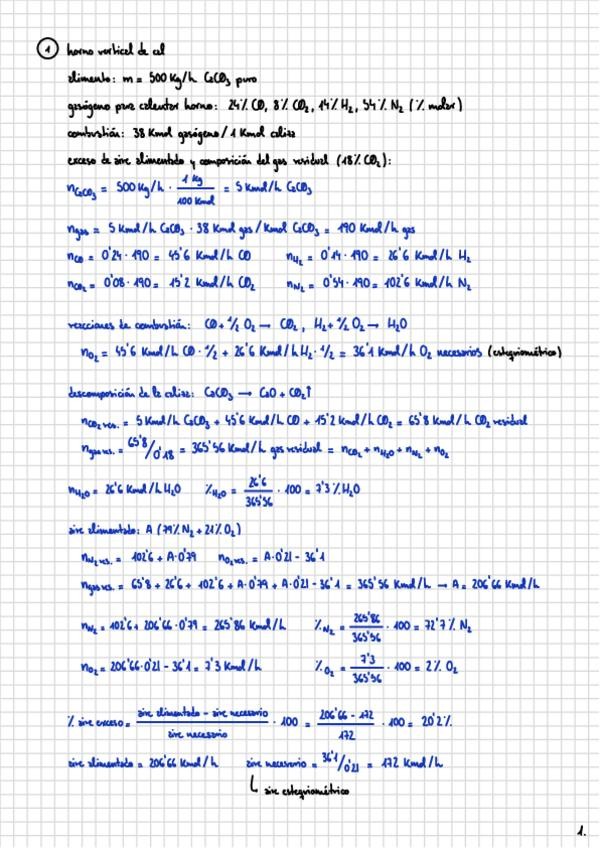 1 horno vertical de cal
alimento: m = 500 Kg/h CaCO₃ puro
gasógeno para calentar horno: 24% CO, 8% CO₂, 14% H₂, 54% N₂ (% molar)
combustión: 38 Kmol gasógeno / 1 Kmol caliza
exceso de aire alimentado y composición del gas residual (18% CO₂):
n_CaCO₃ = 500 Kg/h · 1 Kg / 100 Kmol = 5 Kmol/h CaCO₃
n_gas = 5 Kmol/h CaCO₃ · 38 Kmol gas / Kmol CaCO₃ = 190 Kmol/h gas
n_CO = 0'24 · 190 = 45'6 Kmol/h CO n_H₂ = 0'14 · 190 = 26'6 Kmol/h H₂
n_CO₂ = 0'08 · 190 = 15'2 Kmol/h CO₂ n_N₂ = 0'54 · 190 = 102'6 Kmol/h N₂
reacciones de combustión: CO + 1/2 O₂ → CO₂, H₂ + 1/2 O₂ → H₂O
n_O₂ = 45'6 Kmol/h CO · 1/2 + 26'6 Kmol/h H₂ · 1/2 = 36'1 Kmol/h O₂ necesarios (estequiométrico)
descomposición de la caliza: CaCO₃ → CaO + CO₂↑
n_CO₂ res. = 5 Kmol/h CaCO₃ + 45'6 Kmol/h CO + 15'2 Kmol/h CO₂ = 65'8 Kmol/h CO₂ residual
n_gas res. = 65'8/0'18 = 365'56 Kmol/h gas residual = n_CO₂ + n_H₂O + n_N₂ + n_O₂
n_H₂O = 26'6 Kmol/h H₂O %_H₂O = 26'6 / 365'56 · 100 = 7'3 % H₂O
aire alimentado: A (79% N₂ + 21% O₂)
n_N₂ res. = 102'6 + A·0'79 n_O₂ res. = A·0'21 - 36'1
n_gas res. = 65'8 + 26'6 + 102'6 + A·0'79 + A·0'21 - 36'1 = 365'56 Kmol/h → A = 206'66 Kmol/h
n_N₂ = 102'6 + 206'66 · 0'79 = 265'86 Kmol/h %_N₂ = 265'86 / 365'56 · 100 = 72'7 % N₂
n_O₂ = 206'66 · 0'21 - 36'1 = 7'3 Kmol/h %_O₂ = 7'3 / 365'56 · 100 = 2% O₂
% aire exceso = aire alimentado - aire necesario / aire necesario · 100 = 206'66 - 172 / 172 · 100 = 20'2%
aire alimentado = 206'66 Kmol/h aire necesario = 36'1/0'21 = 172 Kmol/h
↳ aire estequiométrico
1.